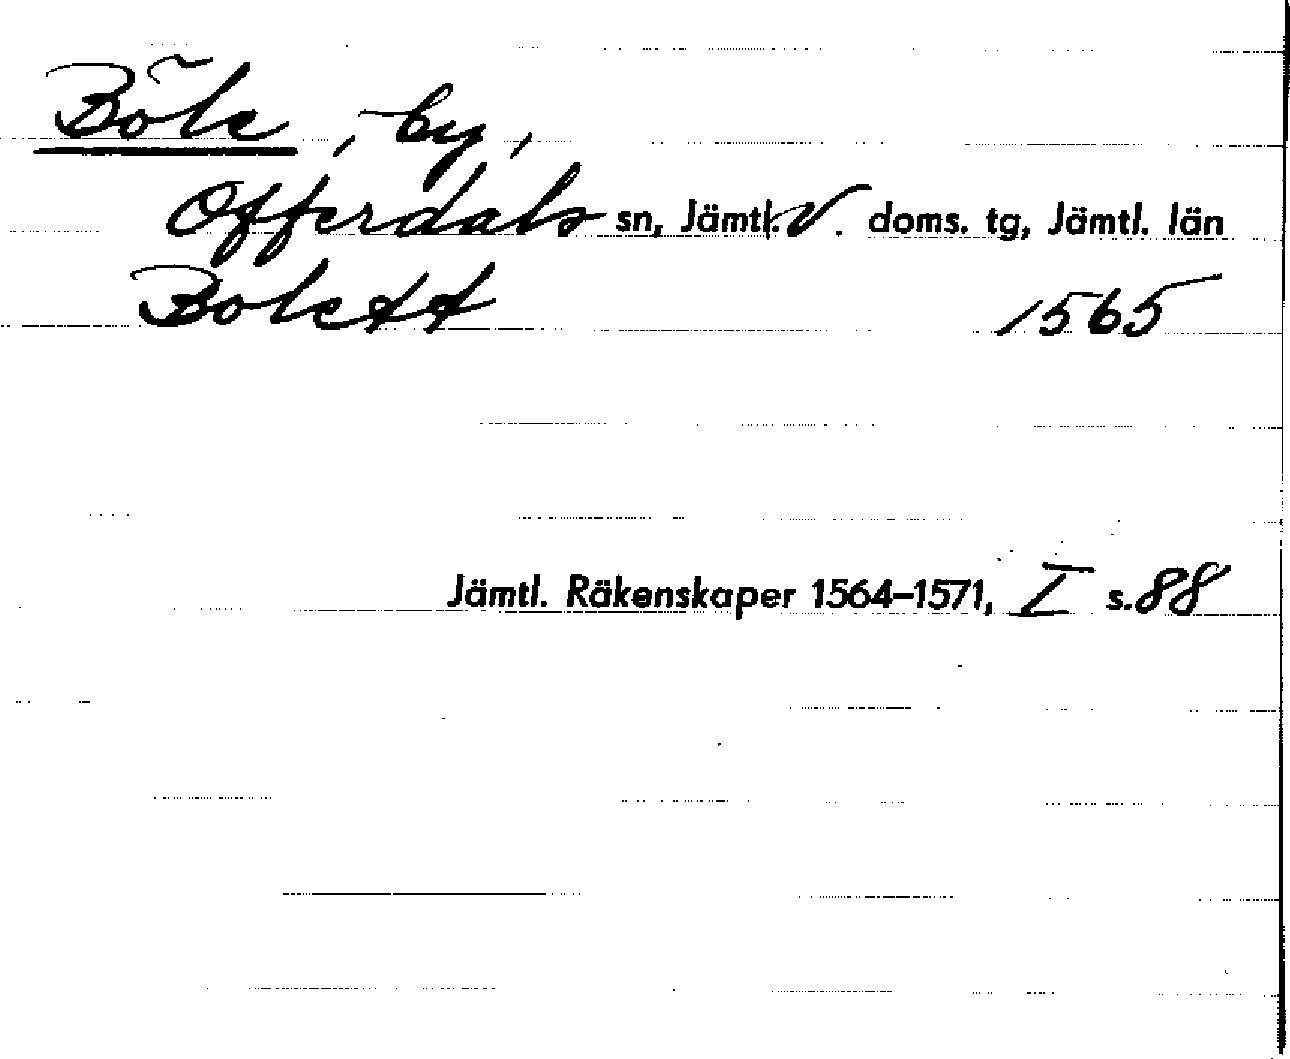 Böle, by,
Offerdals sn, Jämtl. V. doms. tg, Jämtl. län
Bolett 1565
Jämtl. Räkenskaper 1564–1571, I s. 88